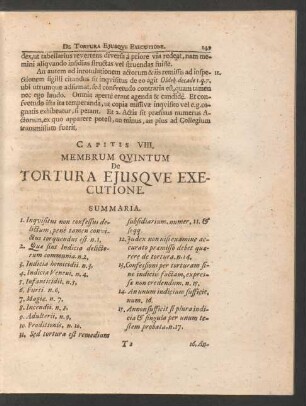 DE TORTURA EJUSQVE EXECUTIONE. 149
dex, ut tabellarius revertens diversa à priore via redeat, nam me-
mini aliqvando insidias structas vel struendas fuisse.
An autem ad inrotulationem actorum & in remissis ad inspe- 11.
ctionem sigilli citandus sit inqvisitus de eo agit
ubi utrumque adfirmat, sed consvetudo contraria est, quam tamen
nec ego laudo. Omnia aperte enim agenda & candidè. Et con-
svetudo ista ita temperanda, ut copia missivæ inquisito vel e. g. co-
gnatis exhibeatur, si petant. Et 2. Actis sit præfixus numerus A-
ctorum, ex quo apparere potest, an minus, an plus ad Collegium
transmissum fuerit.
CAPITIS VIII.
MEMBRUM QVINTUM
De
TORTURA EJUSQVE EXE-
CUTIONE.
SUMMARIA.
1. Inqvisitus non confessus de-
lictum, pene tamen convi-
ctus torquendus est. n. 1.
2. Qua sint Indicia delicto-
rum communia. n. 2.
3. Indicia homicidii. n. 3.
4. Indicia Veneni. n. 4.
5. Infanticidii. n. 5.
6. Furti. n. 6.
7. Magiæ. n. 7.
8. Incendii. n. 8.
9. Adulterii. n. 9.
10. Proditionis. n. 10.
11. Sed tortura est remedium
subsidiarium. numer. 11. &
seqq.
12. Judex non nisi examine ac-
curato præmisso debet quæ-
rere de tortura. n. 14.
13. Confessioni per torturam si-
ne indiciis factam, expres-
sa non credendum. n. 15.
14. An unum indicium sufficit.
num. 16.
17. Annon sufficit si plura indi-
cia & singula per unum te-
stem probata. n. 17.
T 3